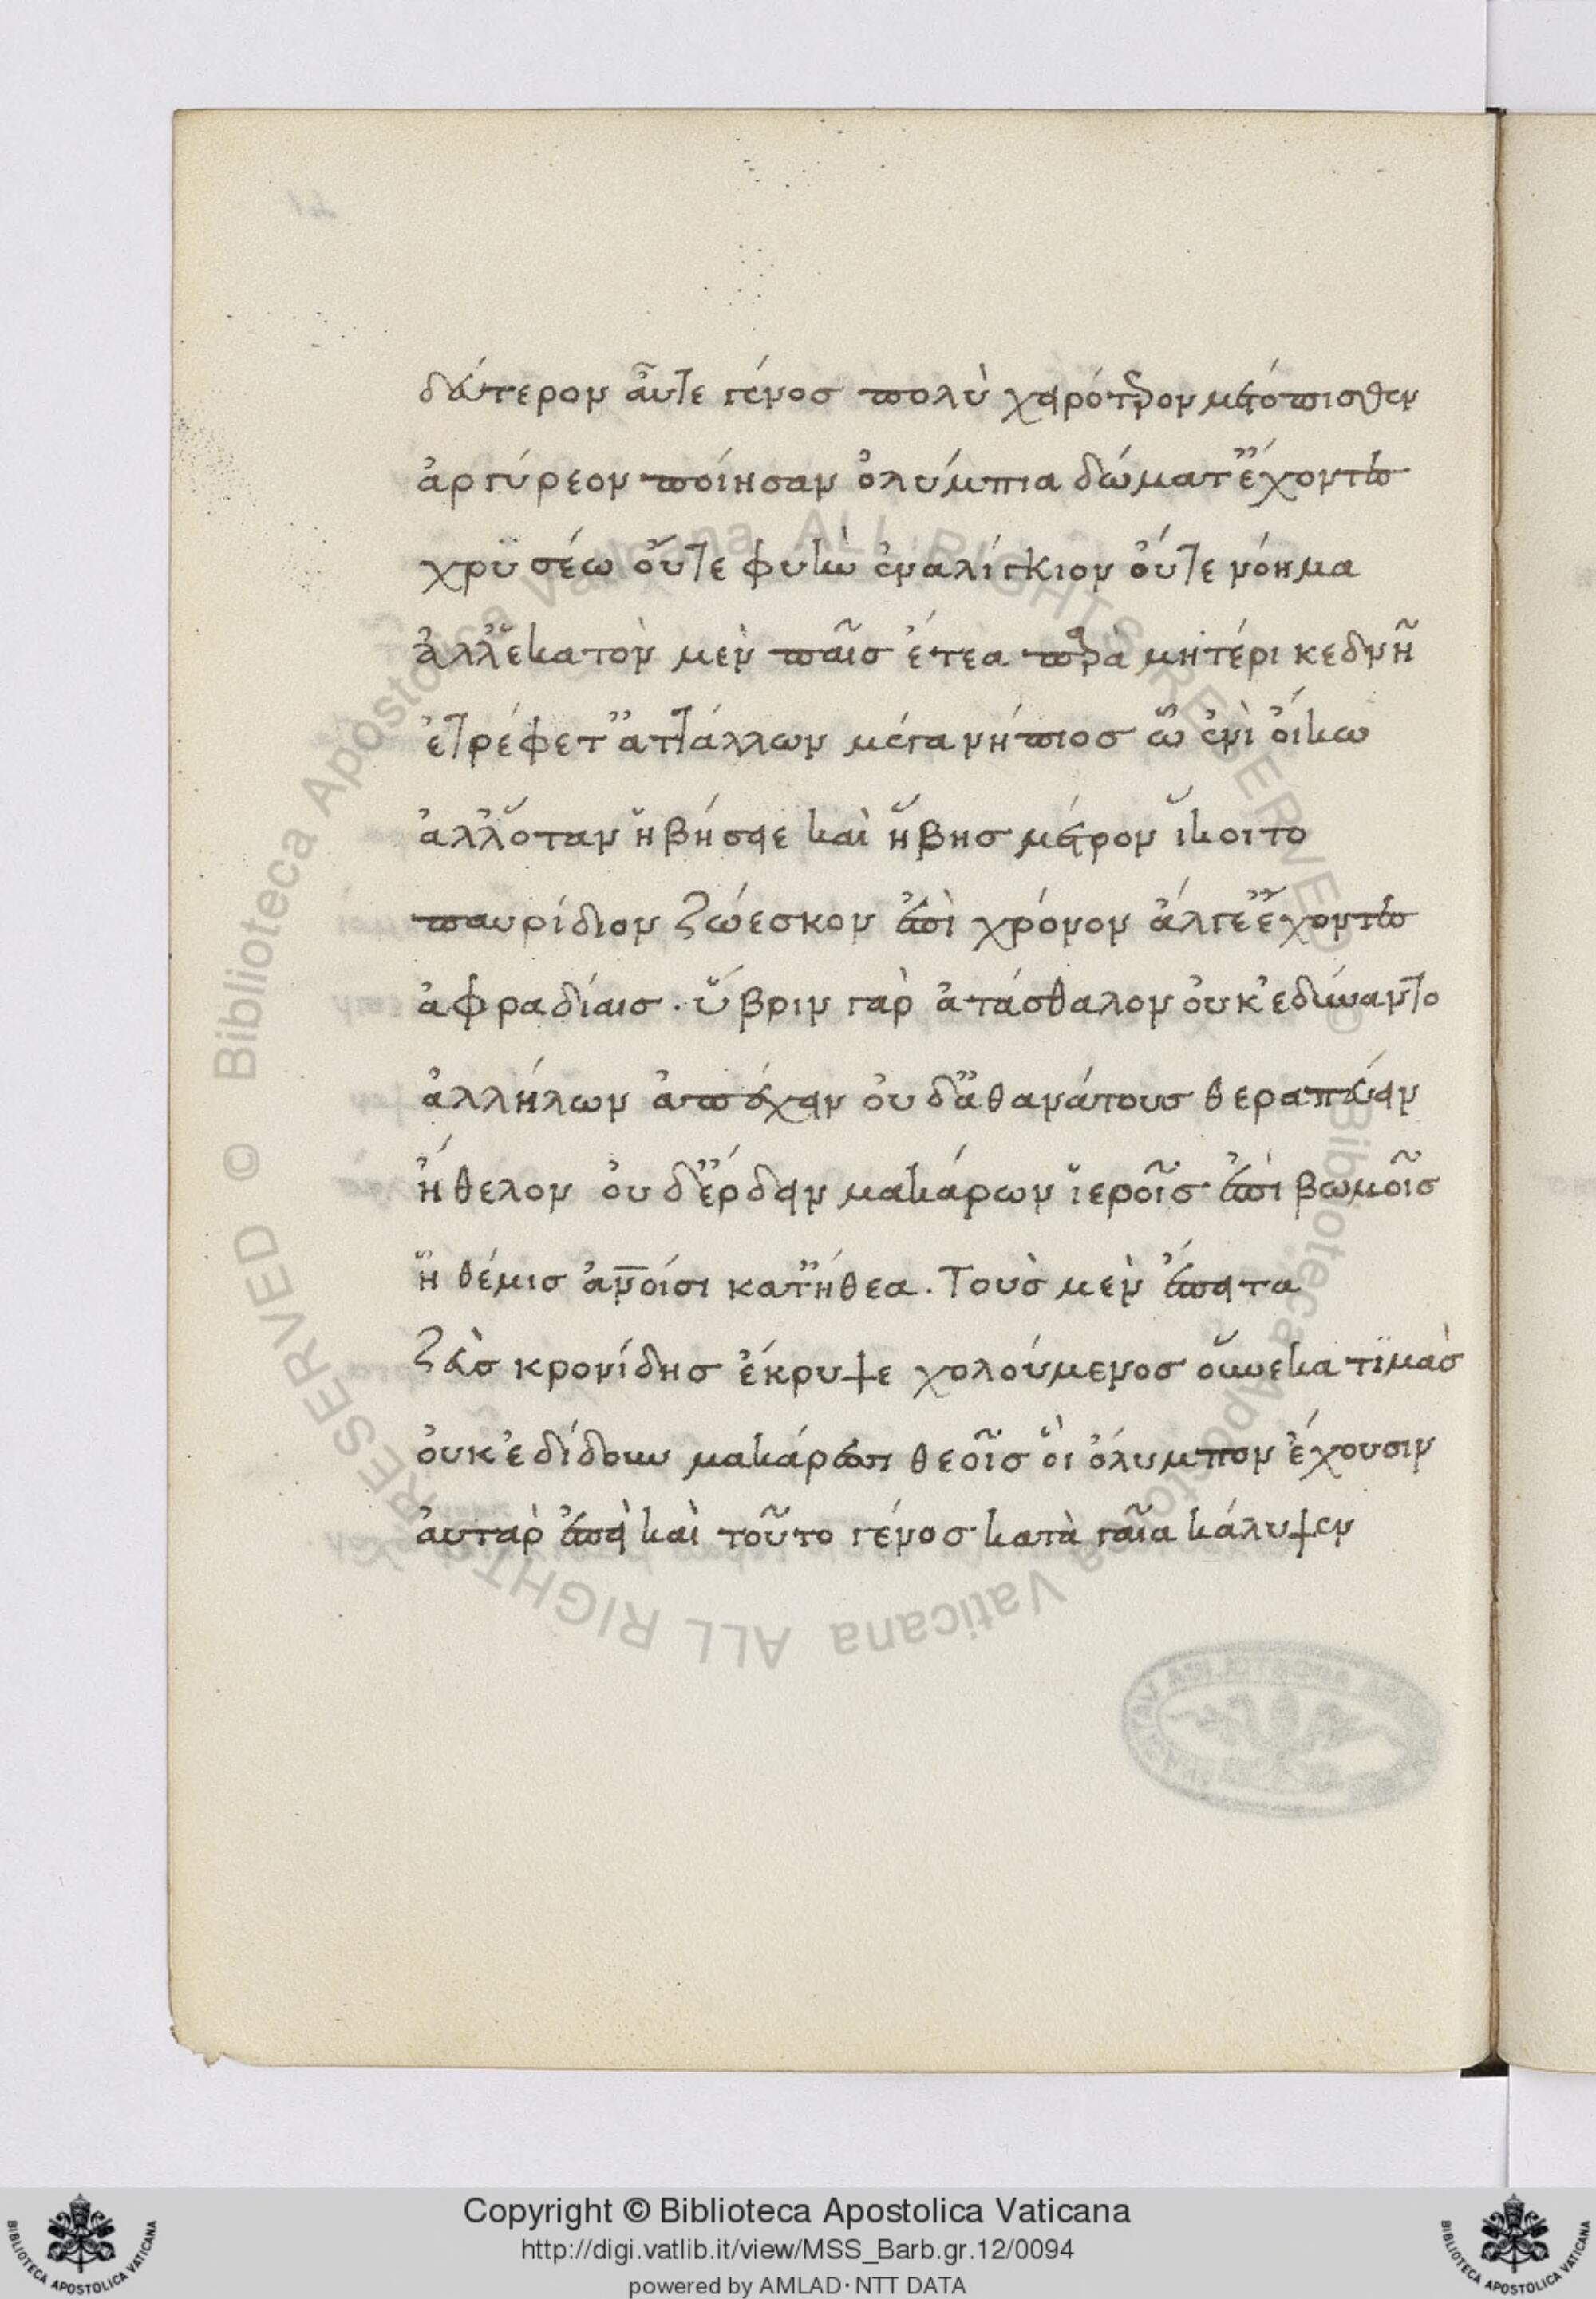 δεύτερον αὖτε γένος πολὺ χειρότερον μετόπισθεν
ἀργύρεον ποίησαν ὀλύμπια δώματ' ἔχοντες
χρϋσέω οὔτε φυὴν ἐναλίγκιον οὔτε νόημα
ἀλλ' ἑκατὸν μὲν παῖς ἔτεα παρὰ μητέρι κεδνῆ
ἐτρέφετ' ἀτιτάλλων μέγα νήπιος ὧ ἐνὶ οἴκω
ἀλλ' ὅταν ἡβήσειε καὶ ἥβης μέτρον ἵκοιτο
παυρίδιον ζώεσκον ἐπὶ χρόνον ἄλγε' ἔχοντες
ἀφραδίαις. ὕβριν γὰρ ἀτάσθαλον οὐκ ἐδύναντο
ἀλλήλων ἀπέχειν οὐδ' ἀθανάτους θεραπεύειν
ἤθελον οὐδ' ἔρδειν μακάρων ἱεροῖς ἐπὶ βωμοῖς
ἣ θέμις ἀνοίσι κατ' ἤθεα. Τοὺς μὲν ἔπειτα
ζεὺς κρονίδης ἔκρυψε χολούμενος οὕνεκα τϊμὰς
οὐκ ἐδίδουν μακάρεσσι θεοῖς οἳ ὄλυμπον ἔχουσιν
αὐτὰρ ἐπεὶ καὶ τοῦτο γένος κατὰ γαῖα κάλυψεν
Copyright © Biblioteca Apostolica Vaticana
http://digi.vatlib.it/view/MSS_Barb.gr.12/0094
powered by AMLAD·NTT DATA